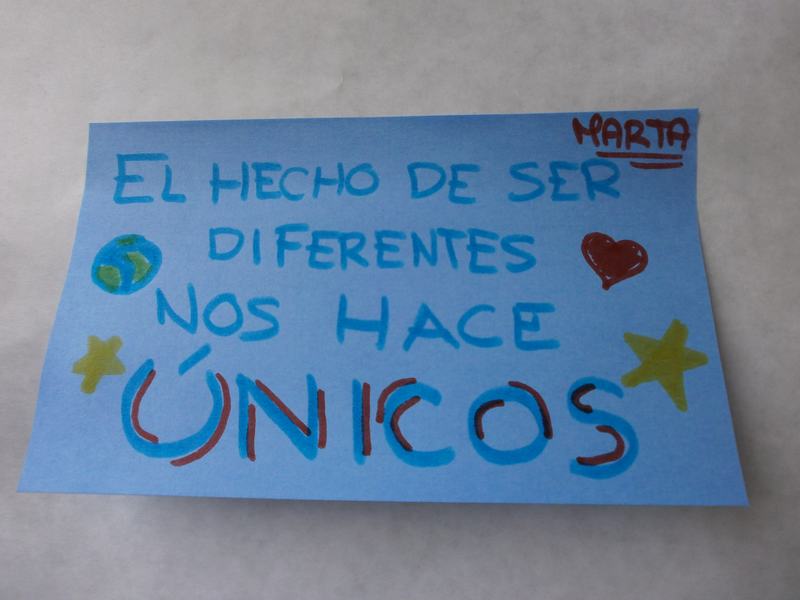 MARTA
EL HECHO DE SER
DIFERENTES
NOS HACE
ÚNICOS